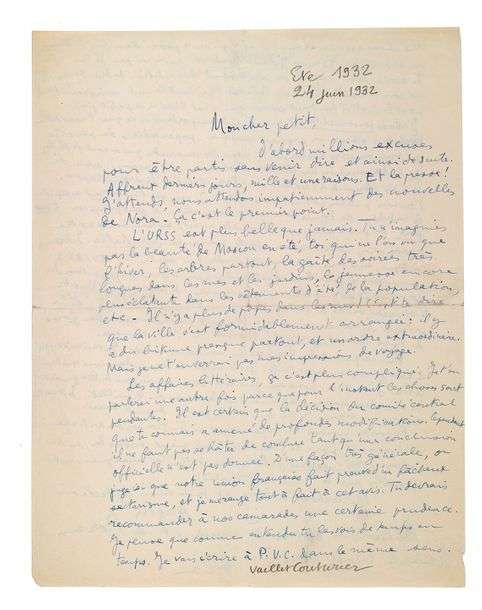 Eté 1932
24 juin 1932
Mon cher petit,
D'abord millions excuses
pour être partis sans venir dire et ainsi de suite.
Affreux derniers jours, mille et une raisons. Et la presse!
J'attends, nous attendons impatiemment des nouvelles
de Nora. Ça c'est le premier point.
L'URSS est plus belle que jamais. Tu n'imagines
pas la beauté de Moscou en été, toi qui ne l'as vu que
l'hiver, les arbres partout, la gaîté des soirées très
longues dans les rues et les jardins, la jeunesse encore
plus éclatante dans les vêtements d'été de la population,
etc. Il n'y a plus de dans les rues! C'est te dire
que la ville s'est formidablement arrangée: il y
a du bitume presque partout, et un ordre extraordinaire.
Mais je ne t'enverrai pas mes impressions de voyage.
Les affaires littéraires, ça c'est plus compliqué. Je t'en
parlerai une autre fois parce que pour l'instant les choses sont
pendantes. Il est certain que la décision du comité central
que tu connais a amené de profondes modifications. Cependant
il ne faut pas se hâter de conclure tant qu'une conclusion
officielle n'est pas donnée. D'une façon très générale, on
juge ici que notre union française fait preuve d'un fâcheux
sectarisme, et je me range tout à fait à cet avis. Tu devrais
recommander à nos camarades une certaine prudence.
Je pense que comme entendu tu les vois de temps en
temps. Je vais écrire à P.V.C. dans le même sens.
Vaillet Couturier